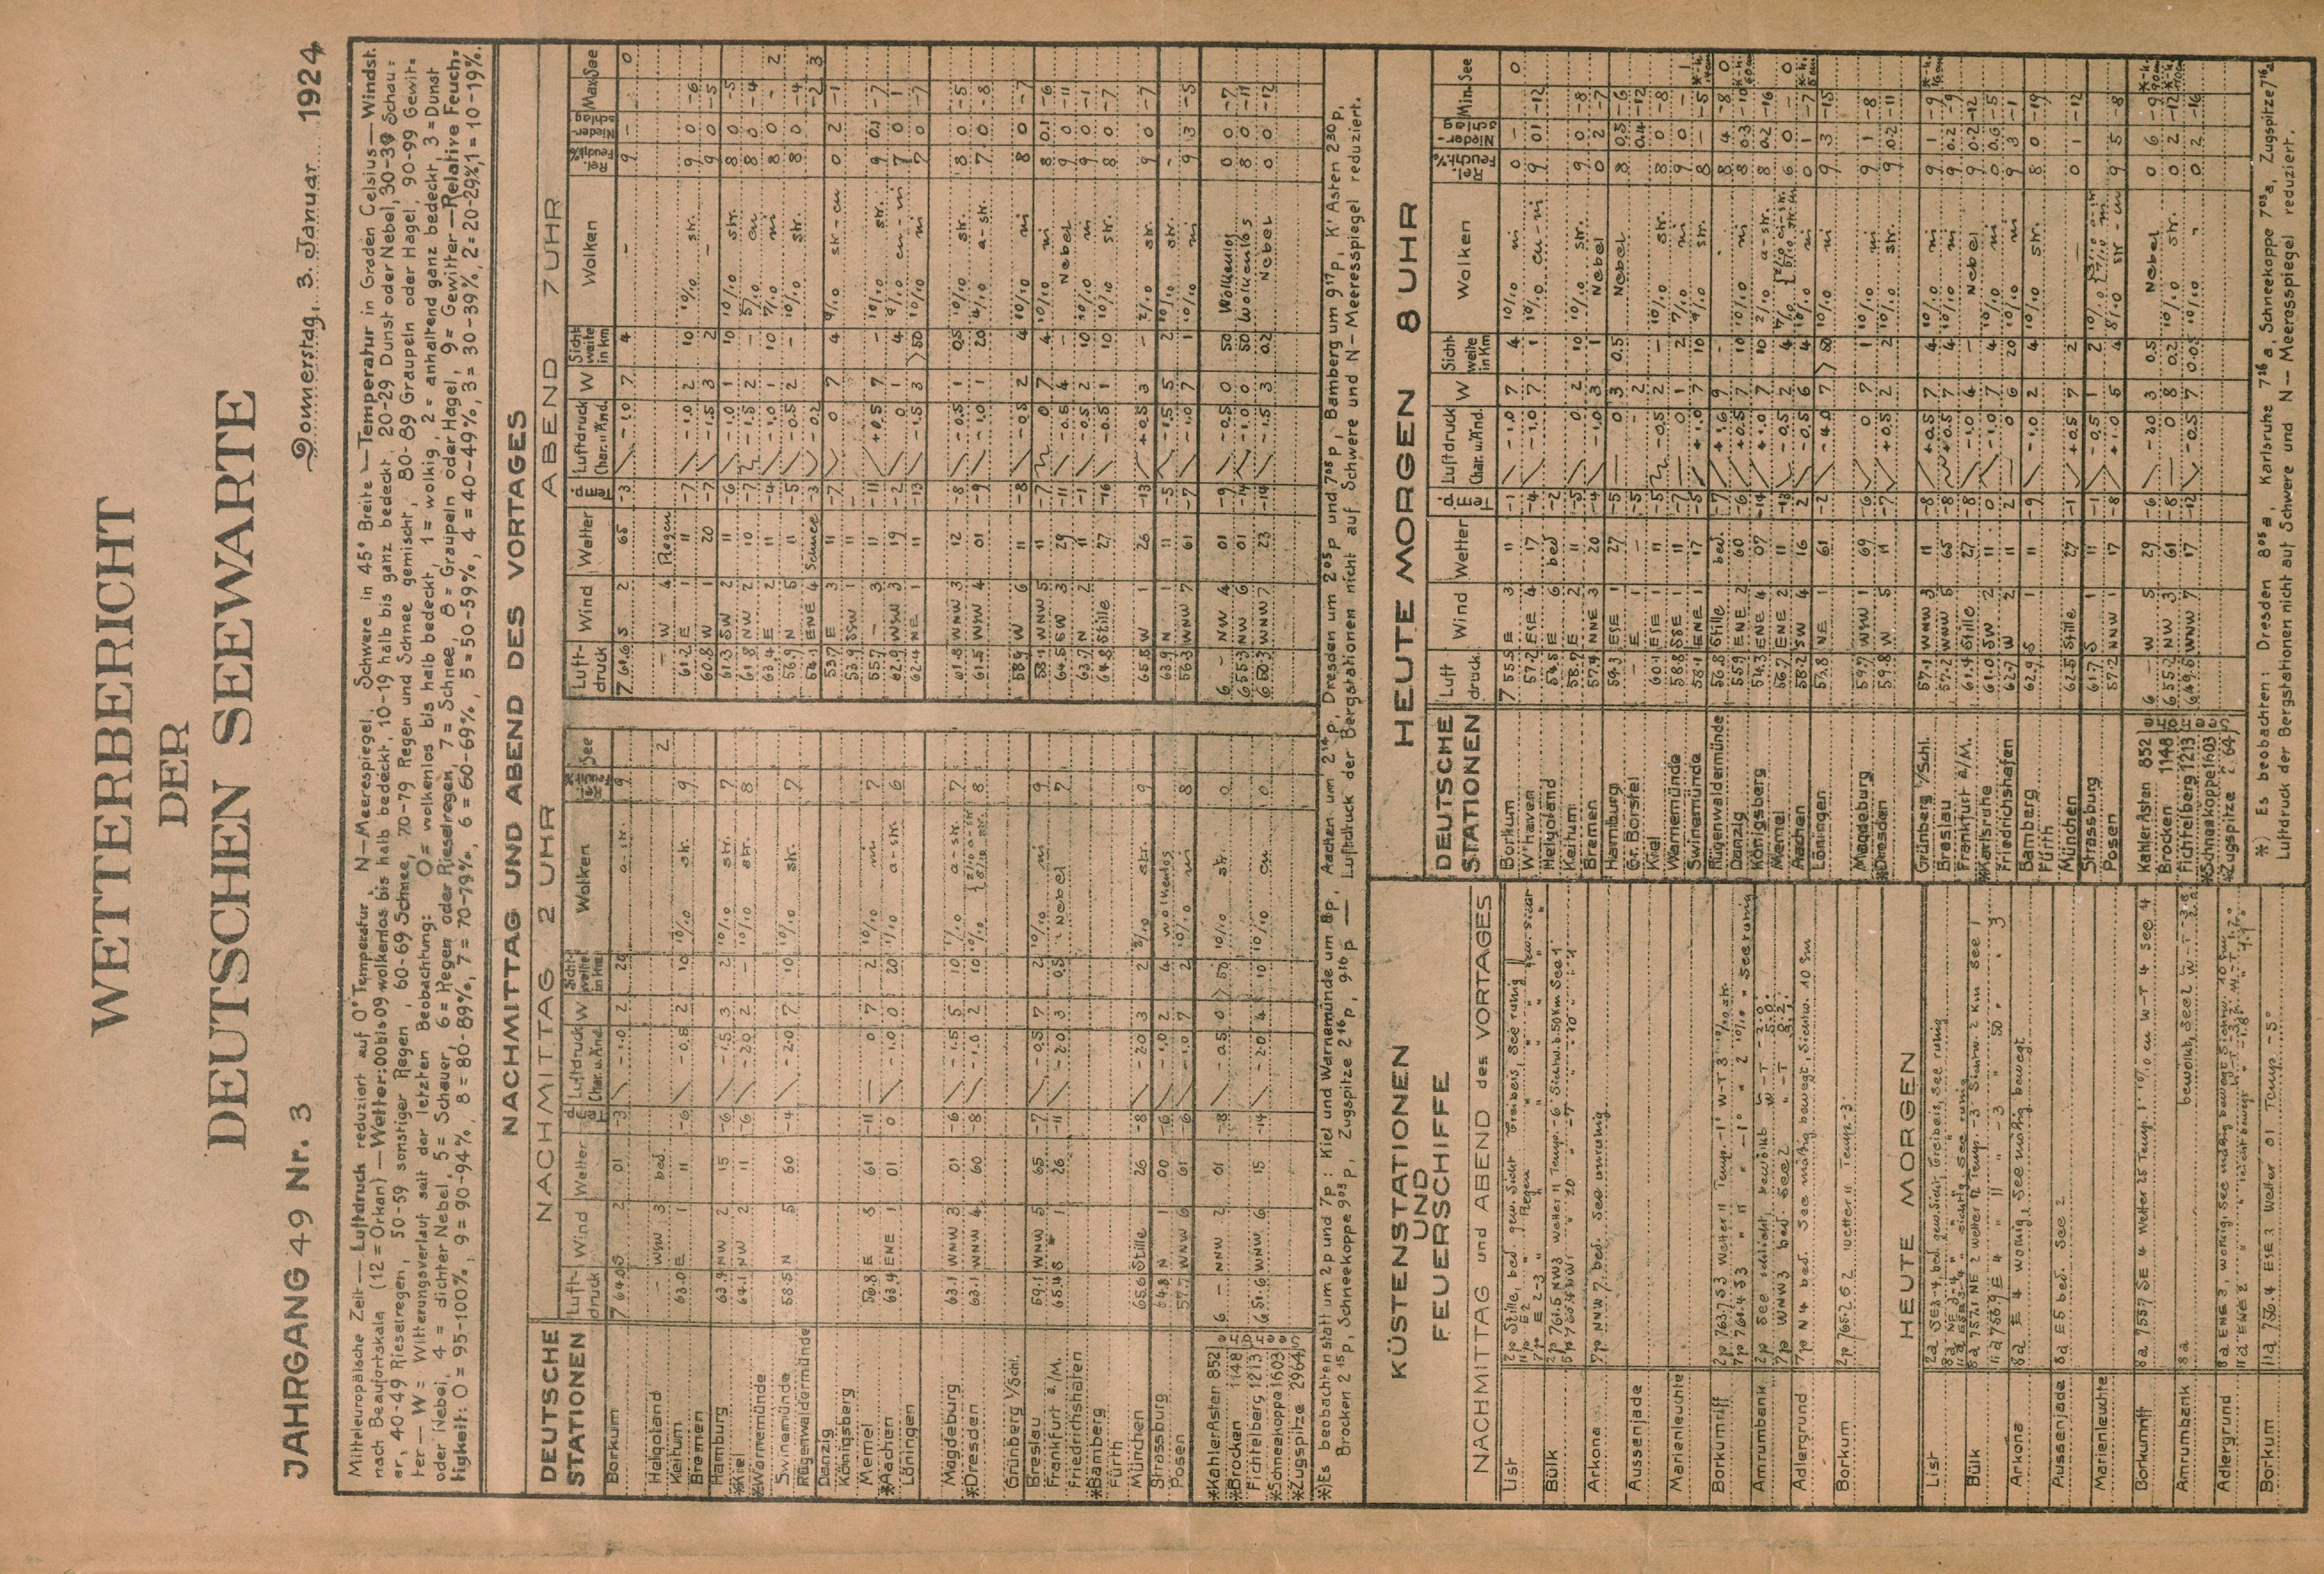 WETTERBERICHT
DER
DEUTSCHEN SEEWARTE
JAHRGANG 49 Nr. 3
Donnerstag, 3. Januar 1924
Mitteleuropäische Zeit — Luftdruck reduziert auf 0° Temperatur, N-Meeresspiegel, Schwere in 45° Breite — Temperatur in Graden Celsius — Windst.
nach Beaufortskala (12 = Orkan) — Wetter: 00 bis 09 wolkenlos bis halb bedeckt, 10-19 halb bis ganz bedeckt, 20-29 Dunst oder Nebel, 30-39 Schau=
er, 40-49 Rieselregen, 50-59 sonstiger Regen, 60-69 Schnee, 70-79 Regen und Schnee gemischt, 80-89 Graupeln oder Hagel, 90-99 Gewit=
ter — W = Witterungsverlauf seit der letzten Beobachtung: 0 = wolkenlos bis halb bedeckt, 1 = wolkig, 2 = anhaltend ganz bedeckt, 3 = Dunst
oder Nebel, 4 = dichter Nebel, 5 = Schauer, 6 = Regen oder Rieselregen, 7 = Schnee, 8 = Graupeln oder Hagel, 9 = Gewitter — Relative Feuch=
tigkeit: 0 = 95-100%, 9 = 90-94%, 8 = 80-89%, 7 = 70-79%, 6 = 60-69%, 5 = 50-59%, 4 = 40-49%, 3 = 30-39%, 2 = 20-29%, 1 = 10-19%.
NACHMITTAG UND ABEND DES VORTAGES
DEUTSCHE STATIONEN
NACHMITTAG 2 UHR
ABEND 7 UHR
Luft-druck Wind Wetter Luftdruck Char. u. Änd. W Sichtweite in km Wolken See
Luft-druck Wind Wetter Luftdruck Char. u. Änd. W Sichtweite in km Wolken Rel. Feucht.% Niederschlag Max. See
Borkum 764.0 S 2 01 -3 -1.0 2 20 a-str. 9
761.6 S 2 65 -3 -1.0 7 4 - 9 - 0
Helgoland - WSW 3 bed. 2
- W 4 Regen
Keitum 63.0 E 1 11 -6 -0.5 2 10 10/10 str. 9
61.2 E 1 11 -7 -1.0 2 10 10/10 str. 9 0 -6
Bremen
60.8 W 1 20 -7 -1.5 3 2 - 9 0 -5
Hamburg 63.9 NW 2 15 -6 -1.5 3 2 10/10 str. 7
61.3 SW 2 11 -6 -1.0 1 10 10/10 str. 8 0 -5
*Kiel 64.1 NW 2 11 -6 -2.0 2 - 10/10 str. 8
61.8 NW 2 10 -7 -1.5 2 - 5/10 cu 8 0 -4
*Warnemünde
63.4 E 2 11 -4 -1.0 1 10 7/10 ni 8 0 - 2
Swinemünde 58.5 N 5 60 -4 -2.0 7 10 10/10 str. 7
56.9 N 5 11 -5 -0.5 2 - 10/10 str. 8 0 -4
Rügenwaldermünde
54.1 ENE 4 Schnee -3 -0.2 -2 3
Danzig
53.7 E 3 11 -7 0 7 4 9/10 str-cu 0 2 -1
Königsberg
53.9 SSW 1 11
Memel 56.8 E 8 61 -11 0 7 2 10/10 ni 7
55.7 - 3 11 -11 +0.5 7 - 10/10 str. 9 0.1 -7
*Aachen 63.4 ENE 1 01 0 -1.0 0 20 1/10 a-str. 6
62.9 WSW 3 19 -2 0 1 4 9/10 cu-ni 7 0 1
Löningen
62.4 NE 1 11 -13 -1.5 3 >50 10/10 ni 7 0 -7
Magdeburg 63.1 WNW 3 01 -6 -1.5 5 10 1/10 a-str. 7
61.8 WNW 3 12 -8 -0.5 1 0.5 10/10 str. 8 0 -5
*Dresden 63.1 WNW 4 60 -8 -1.0 2 10 10/10 8
61.5 WNW 4 01 -9 -1.0 1 20 4/10 a-str. 7 0 -8
Grünberg i/Schl.
58.9 W 6 11 -8 -0.5 2 4 10/10 ni 8 0 -7
Breslau 59.1 WNW 5 65 -7 -0.5 7 2 10/10 ni 9
58.1 WNW 5 11 -7 0 7 4 10/10 ni 8 0.1 -6
Frankfurt a/M. 65.4 S 1 26 -11 -2.0 3 0.5 - Nebel 7
64.5 SW 3 29 -11 -0.5 4 - Nebel 9 0 -11
Friedrichshafen
63.7 N 2 11 -1 -0.5 2 10 10/10 ni 9 0 -1
*Bamberg
64.8 Stille 27 -16 -0.5 1 10 10/10 str. 8 0 -7
Fürth
München 65.6 Stille 26 -8 -2.0 3 2 3/10 str. 9
65.8 W 1 26 -13 +0.5 3 - 2/10 str. 9 0 -7
Strassburg 64.8 N 1 00 -6 -1.0 2 4 wolkenlos
63.9 N 1 11 -5 -1.5 5 2 10/10 str. -
Posen 57.7 WNW 6 61 -6 -1.0 7 2 10/10 ni 8
56.3 WNW 7 61 -7 -1.0 7 1 10/10 ni 9 3 -5
*Kahler Asten 852 6 - NNW 2 01 -8 -0.5 0 >50 10/10 str. 0
6 - NW 4 01 -9 -0.5 0 50 Wolkenlos 0 0 -7
*Brocken 1148
655.3 NW 6 01 -14 -1.0 0 50 Wolkenlos 8 0 -11
Fichtelberg 1213 651.6 WNW 6 15 -14 -2.0 4 10 10/10 cu 0
650.3 WNW 7 23 -14 -1.5 3 0.2 Nebel 0 0 -12
*Schneekoppe 1603
*Zugspitze 2964
*) Es beobachten statt um 2p und 7p: Kiel und Warnemünde um 8p, Aachen um 2¹⁴p, Dresden um 2⁰⁵p und 7⁰⁵p, Bamberg um 9¹⁷p, K' Asten 2³⁰p,
Brocken 2¹⁵p, Schneekoppe 9⁰³p, Zugspitze 2¹⁶p, 9¹⁶p — Luftdruck der Bergstationen nicht auf Schwere und N-Meeresspiegel reduziert.
KÜSTENSTATIONEN
UND
FEUERSCHIFFE
NACHMITTAG und ABEND des VORTAGES
List 2p Stille, bed. gew. Sicht Treibeis, See ruhig
Bülk 2p 761.5 NW 3 Wetter 11 Temp. -6 Sichtw. 50 km See 1
Arkona 7p NNW 7 bed. See unruhig
Aussenjade
Marienleuchte
Borkumriff 2p 763.7 S 3 Wetter 11 Temp. -1° W-T 3 10/10 str.
7p 761.4 S 3 " 11 " -1° " 2 10/10 " See ruhig
Amrumbank 2p See schlicht, bewölkt W-T -2.0°
7p WNW 3 bed. See 2 " -T
Adlergrund 7p N 4 bed. See mäßig bewegt, Sichtw. 10 Sm
Borkum 2p 765.2 S 2 Wetter 11 Temp. -3°
HEUTE MORGEN
List 2a SE 3-4, bed. gew. Sicht, Treibeis, See ruhig
Bülk 8a 757.1 NE 2 Wetter 12 Temp. -3 Sichtw. 2 km See 1
11a 756.9 E 4 " 11 " -3 " 50 " " 3
Arkona 8a E 4 wolkig, See mäßig bewegt
Aussenjade 8a E 5 bed. See 2
Marienleuchte
Borkumriff 8a 755.7 SE 4 Wetter 25 Temp. 1° 10/10 cu W-T 4 See 4
Amrumbank 8a bewölkt, See 2 W-T -3.8
Adlergrund 8a ENE 3, wolkig, See mäßig bewegt Sichtw. 10 Sm
Borkum 11a 756.4 ESE 3 Wetter 01 Temp. -5°
HEUTE MORGEN 8 UHR
DEUTSCHE STATIONEN Luft druck Wind Wetter Luftdruck Char. u. Änd. W Sichtweite in Km Wolken Rel. Feucht.% Niederschlag Min. See
Borkum 755.5 E 3 11 -1 -1.0 7 4 10/10 ni 0 - - 0
W'haven 57.2 ESE 4 17 -4 -1.0 7 1 10/10 cu-ni 9 0.1 -12
Helgoland 54.5 E 6 bed -2
Keitum 58.7 E 2 11 -5 0 2 10 10/10 str. 9 0 -8
Bremen 57.4 NNE 3 20 -4 -1.0 3 1 Nebel 0 2 -7
Hamburg 59.3 ESE 1 27 -5 0 3 0.5 Nebel 8 0.5 -6
Gr. Borstel - E 1 - -5 2 0.4 -12
Kiel 60.1 ESE 1 11 -5 -0.5 2 - 10/10 str. 8 0 -8
Warnemünde 58.8 SSE 1 11 -7 0 1 2 7/10 ni 9 0 -
Swinemünde 58.1 ENE 1 17 -5 +1.0 7 10 9/10 str. 8 - -5
Rügenwaldermünde 56.8 Stille bed. -7 +1.6 9 - - 8 4 -8 0
Danzig 55.9 ENE 2 60 -6 +0.5 7 10 10/10 ni 8 0.3 -10
Königsberg 54.3 ENE 4 07 -14 7 10 2/10 a-str. 8 0.2 -16
Memel 56.7 ENE 2 11 -13 -0.5 2 6 0 - 0
Aachen 58.2 SW 4 16 2 -0.5 6 4 10/10 ni 0 1 -7
Löningen 57.8 NE 1 61 -2 -4.0 7 >50 10/10 ni 9 3 -15
Magdeburg 59.7 WSW 1 69 -6 0 7 1 10/10 ni 9 1 -8
*Dresden 59.8 W 5 11 -7 +0.5 2 2 10/10 str. 9 0.2 -11
Grünberg i/Schl. 57.1 WNW 3 11 -8 +0.5 7 4 10/10 ni 9 1 -9
Breslau 57.2 WNW 5 65 -8 +0.5 7 4 10/10 ni 9 0.2 -9
Frankfurt a/M. 61.4 Stille 27 -8 -1.0 4 - Nebel 9 0.2 -12
*Karlsruhe 61.0 SW 2 11 0 -1.0 7 4 10/10 ni 0 0.6 -5
Friedrichshafen 62.7 W 2 11 2 0 6 20 10/10 ni 9 3 -1
Bamberg 62.9 S 1 11 -9 -1.0 2 4 10/10 str. 8 0 -19
Fürth
München 62.5 Stille 27 -1 +0.5 7 2 - 0 1 -12
Strassburg 61.7 S 1 11 -1 -0.5 1 2 10/10
Posen 57.2 NNW 1 17 -8 +1.0 5 4 8/10 str-cu 9 5 -8
Kahler Asten 852 6 - W 5 29 -6 -2.0 3 0.5 Nebel 0 6 -9
Brocken 1148 655.2 NW 3 61 -8 0 8 0.2 10/10 str. 0 2 -12
Fichtelberg 1213 649.6 WNW 7 17 -12 -0.5 7 0.05 10/10 " 0 2 -16
*Schneekoppe 1603
*Zugspitze 2964
*) Es beobachten: Dresden 8⁰⁵a, Karlsruhe 7²⁶a, Schneekoppe 7⁰³a, Zugspitze 7¹⁶a
Luftdruck der Bergstationen nicht auf Schwere und N-Meeresspiegel reduziert.